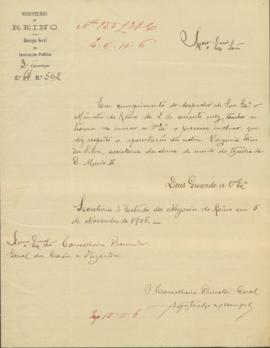 MINISTERIO
DO
REINO
Direcção Geral
de
Instrucção Publica
3.ª Repartição
N.º 64 N.º 502
E. 6-11-6
Em cumprimento do despacho de Sua Ex.ª o
Ministro do Reino de 2 do corrente mez, tenho a
honra de enviar a V. Ex.ª o processo incluso, que
diz respeito á aposentação da actriz Virginia Dias
da Silva, societaria da classe de merito do theatro de
D. Maria II.
Deus Guarde a V. Ex.ª
Secretaria d'Estado dos Negocios do Reino em 5
de Novembro de 1906
Conselheiro Procurador
Geral da Corôa e Fazenda
O Conselheiro Director Geral